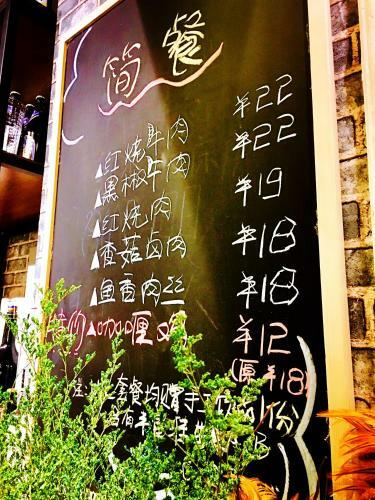 简餐
▲红烧牛肉 ¥22
▲黑椒牛肉 ¥22
▲红烧肉 ¥19
▲香菇卤肉 ¥18
▲鱼香肉丝 ¥18
特价▲咖喱鸡 ¥12
(原¥18)
注:以上套餐均赠手工 份